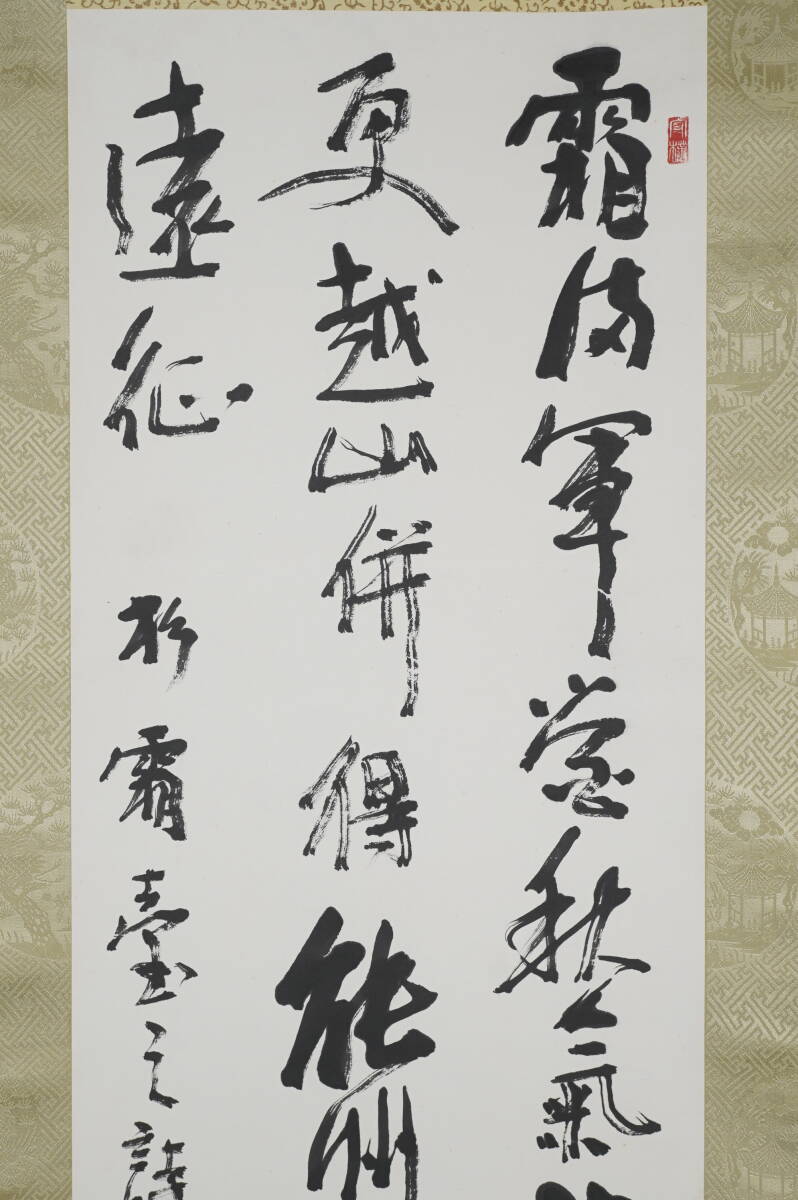 霜満軍営秋氣
更越山併得能州
遠征 杉霜臺之詩